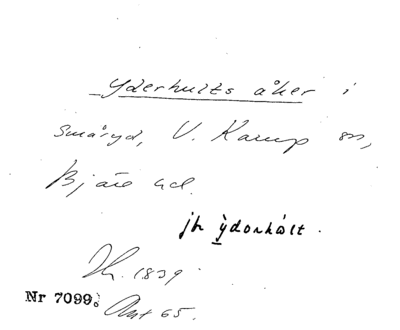 Yderhults åker i
Småryd, V. Karup sn,
Bjäre hd.
jfr ỳdərhə̀lt.
Hr. 1839.
Nr 7099. Ant 65.